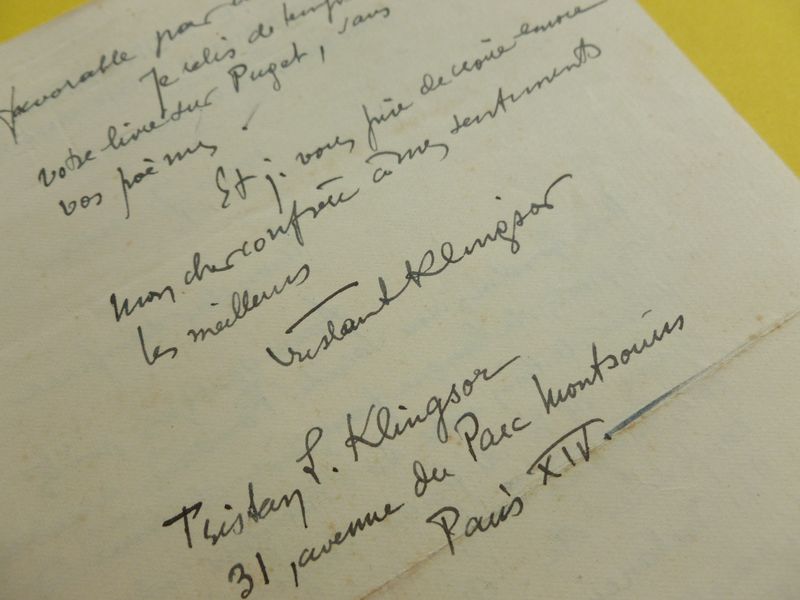 favorable pour
Je relis de temps
votre livre sur Puget, sans
vos poèmes.
Et je vous prie de croire encore
mon cher confrère à mes sentiments
les meilleurs
Tristan Klingsor
Tristan L. Klingsor
31, avenue du Parc Montsouris
Paris XIV.